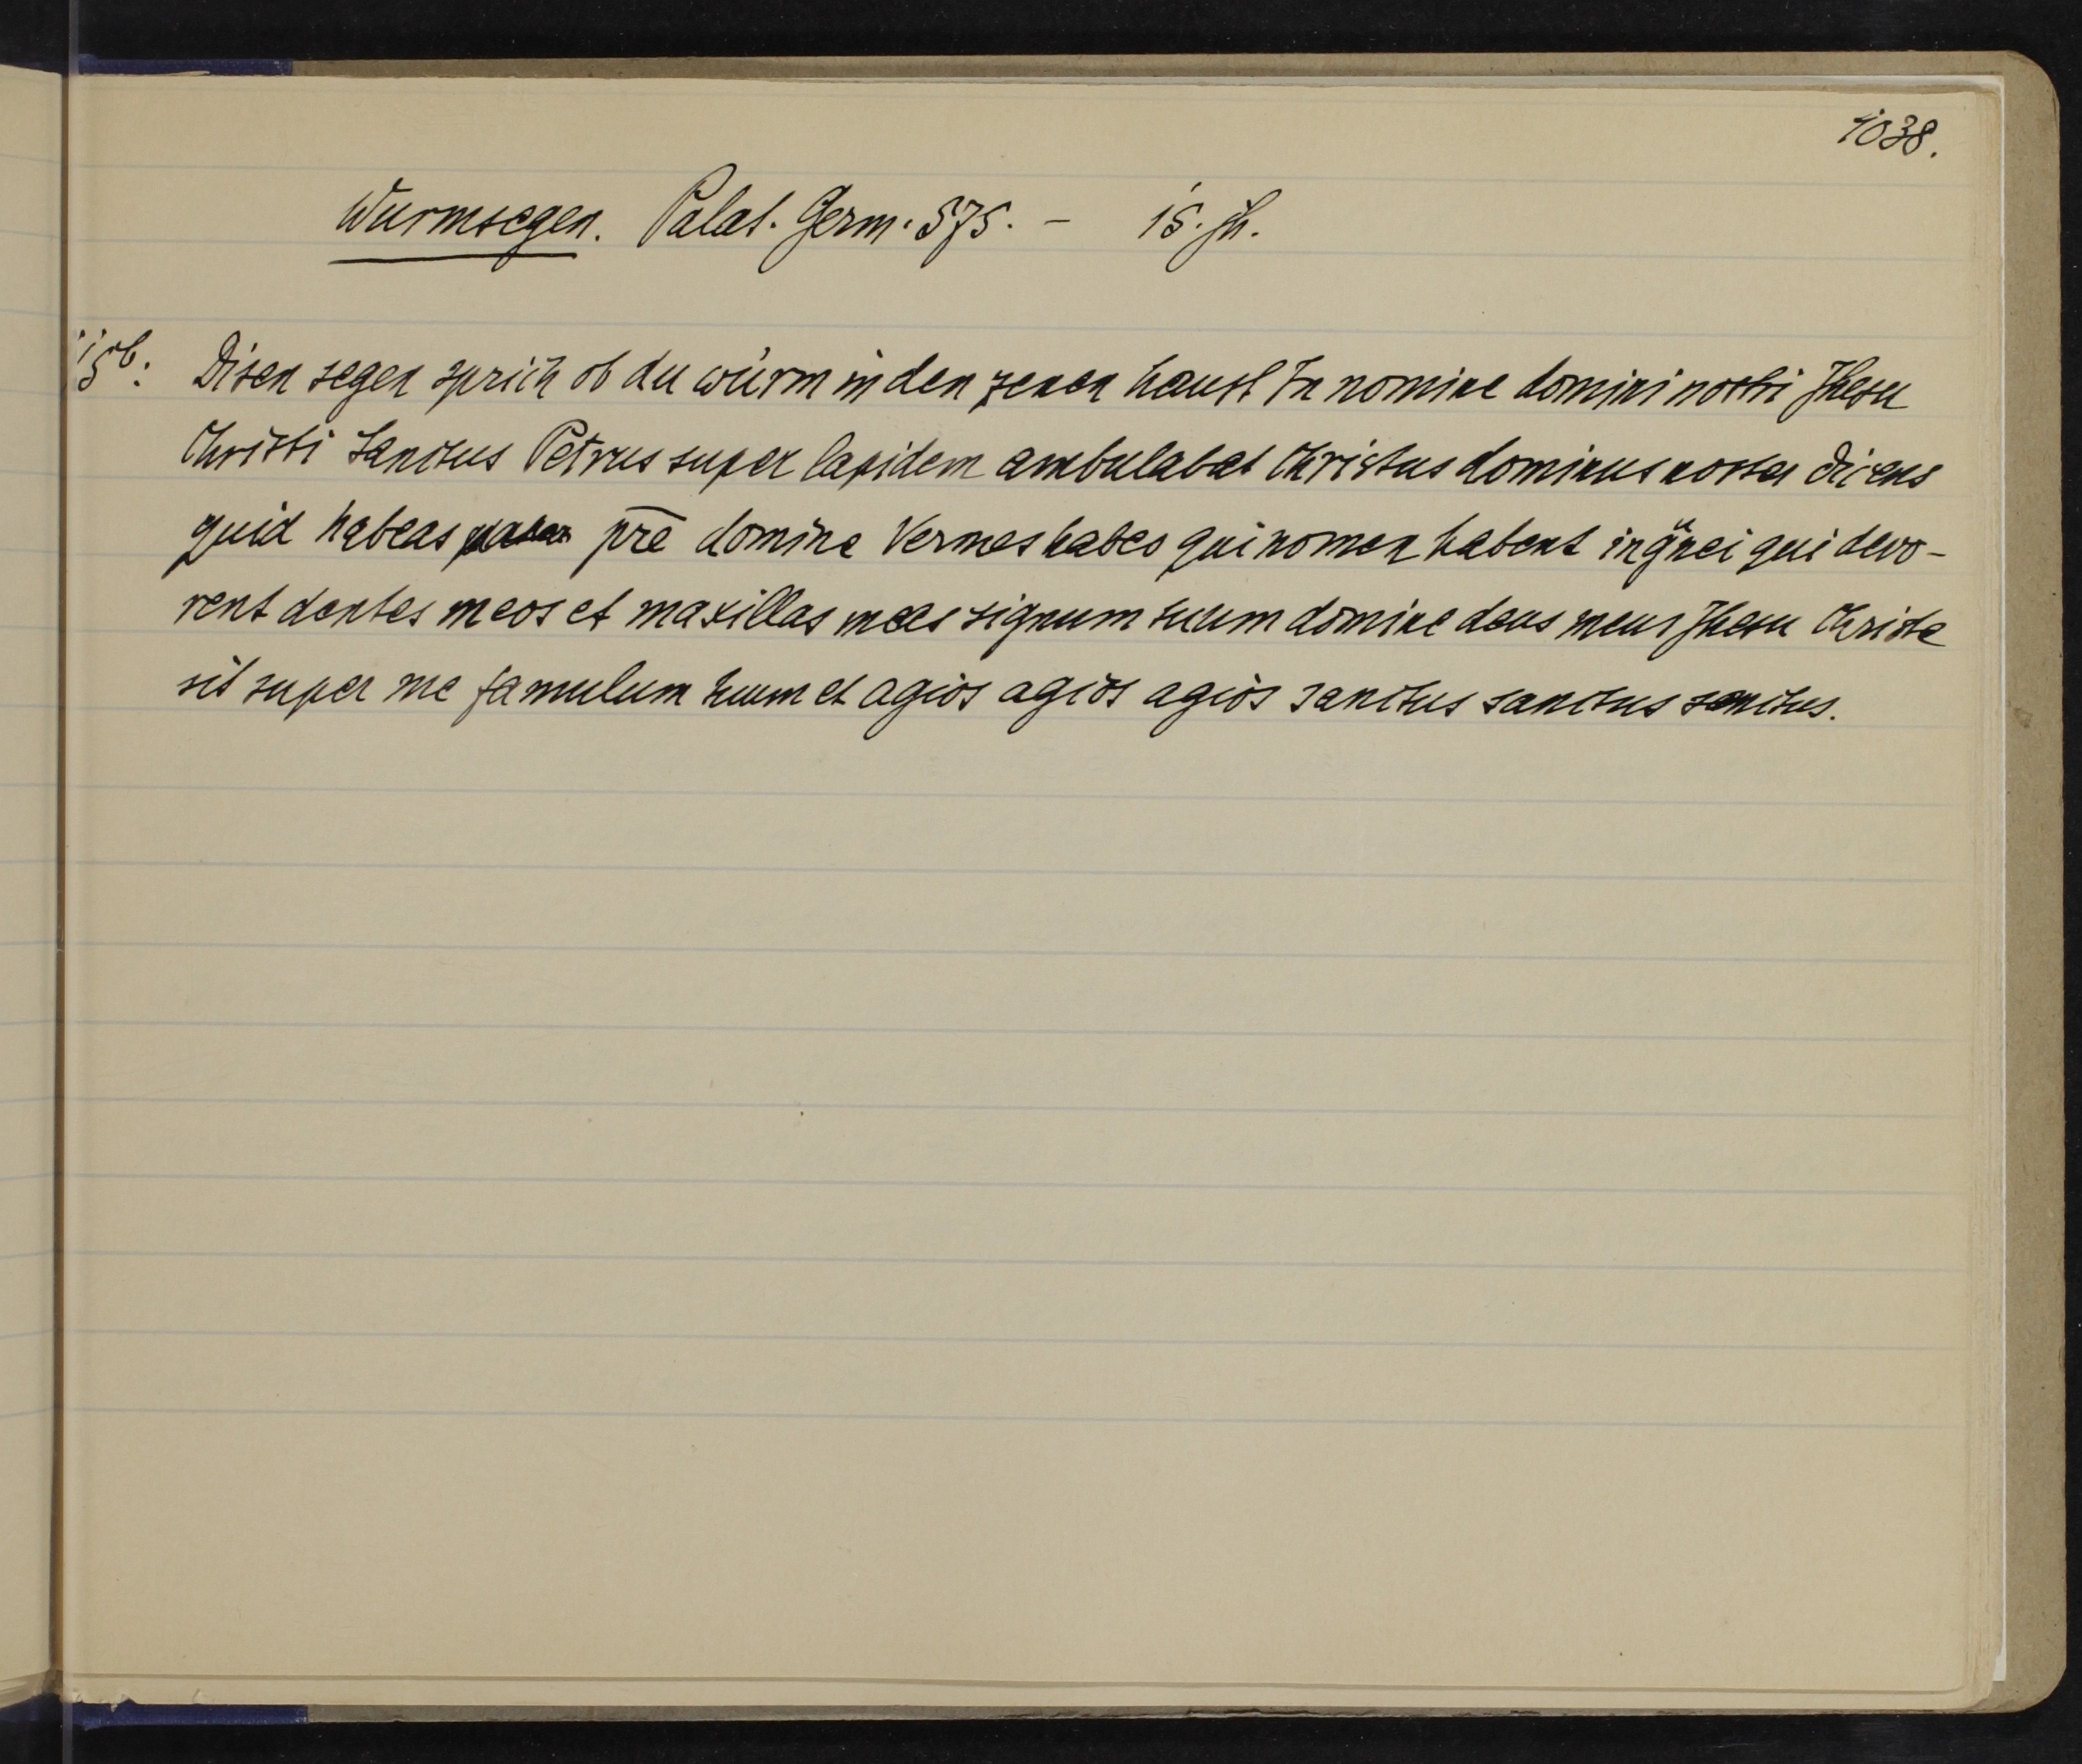 1038.
Wurmsegen. Palat. Germ. 575. - 15. jh.
15b: Disen segen sprich ob du würm in den zenen haust In nomine domini nostri Jhesu
Christi Sanctus Petrus super lapidem ambulabat Christus dominus noster dicens
quid habeas pr̄e domine Vermes habeo qui nomen habent qui devo-
rent dentes meos et maxillas meas signum tuum domine deus meus Jhesu Christe
sit super me famulum tuum et agios agios agios sanctus sanctus sanctus.